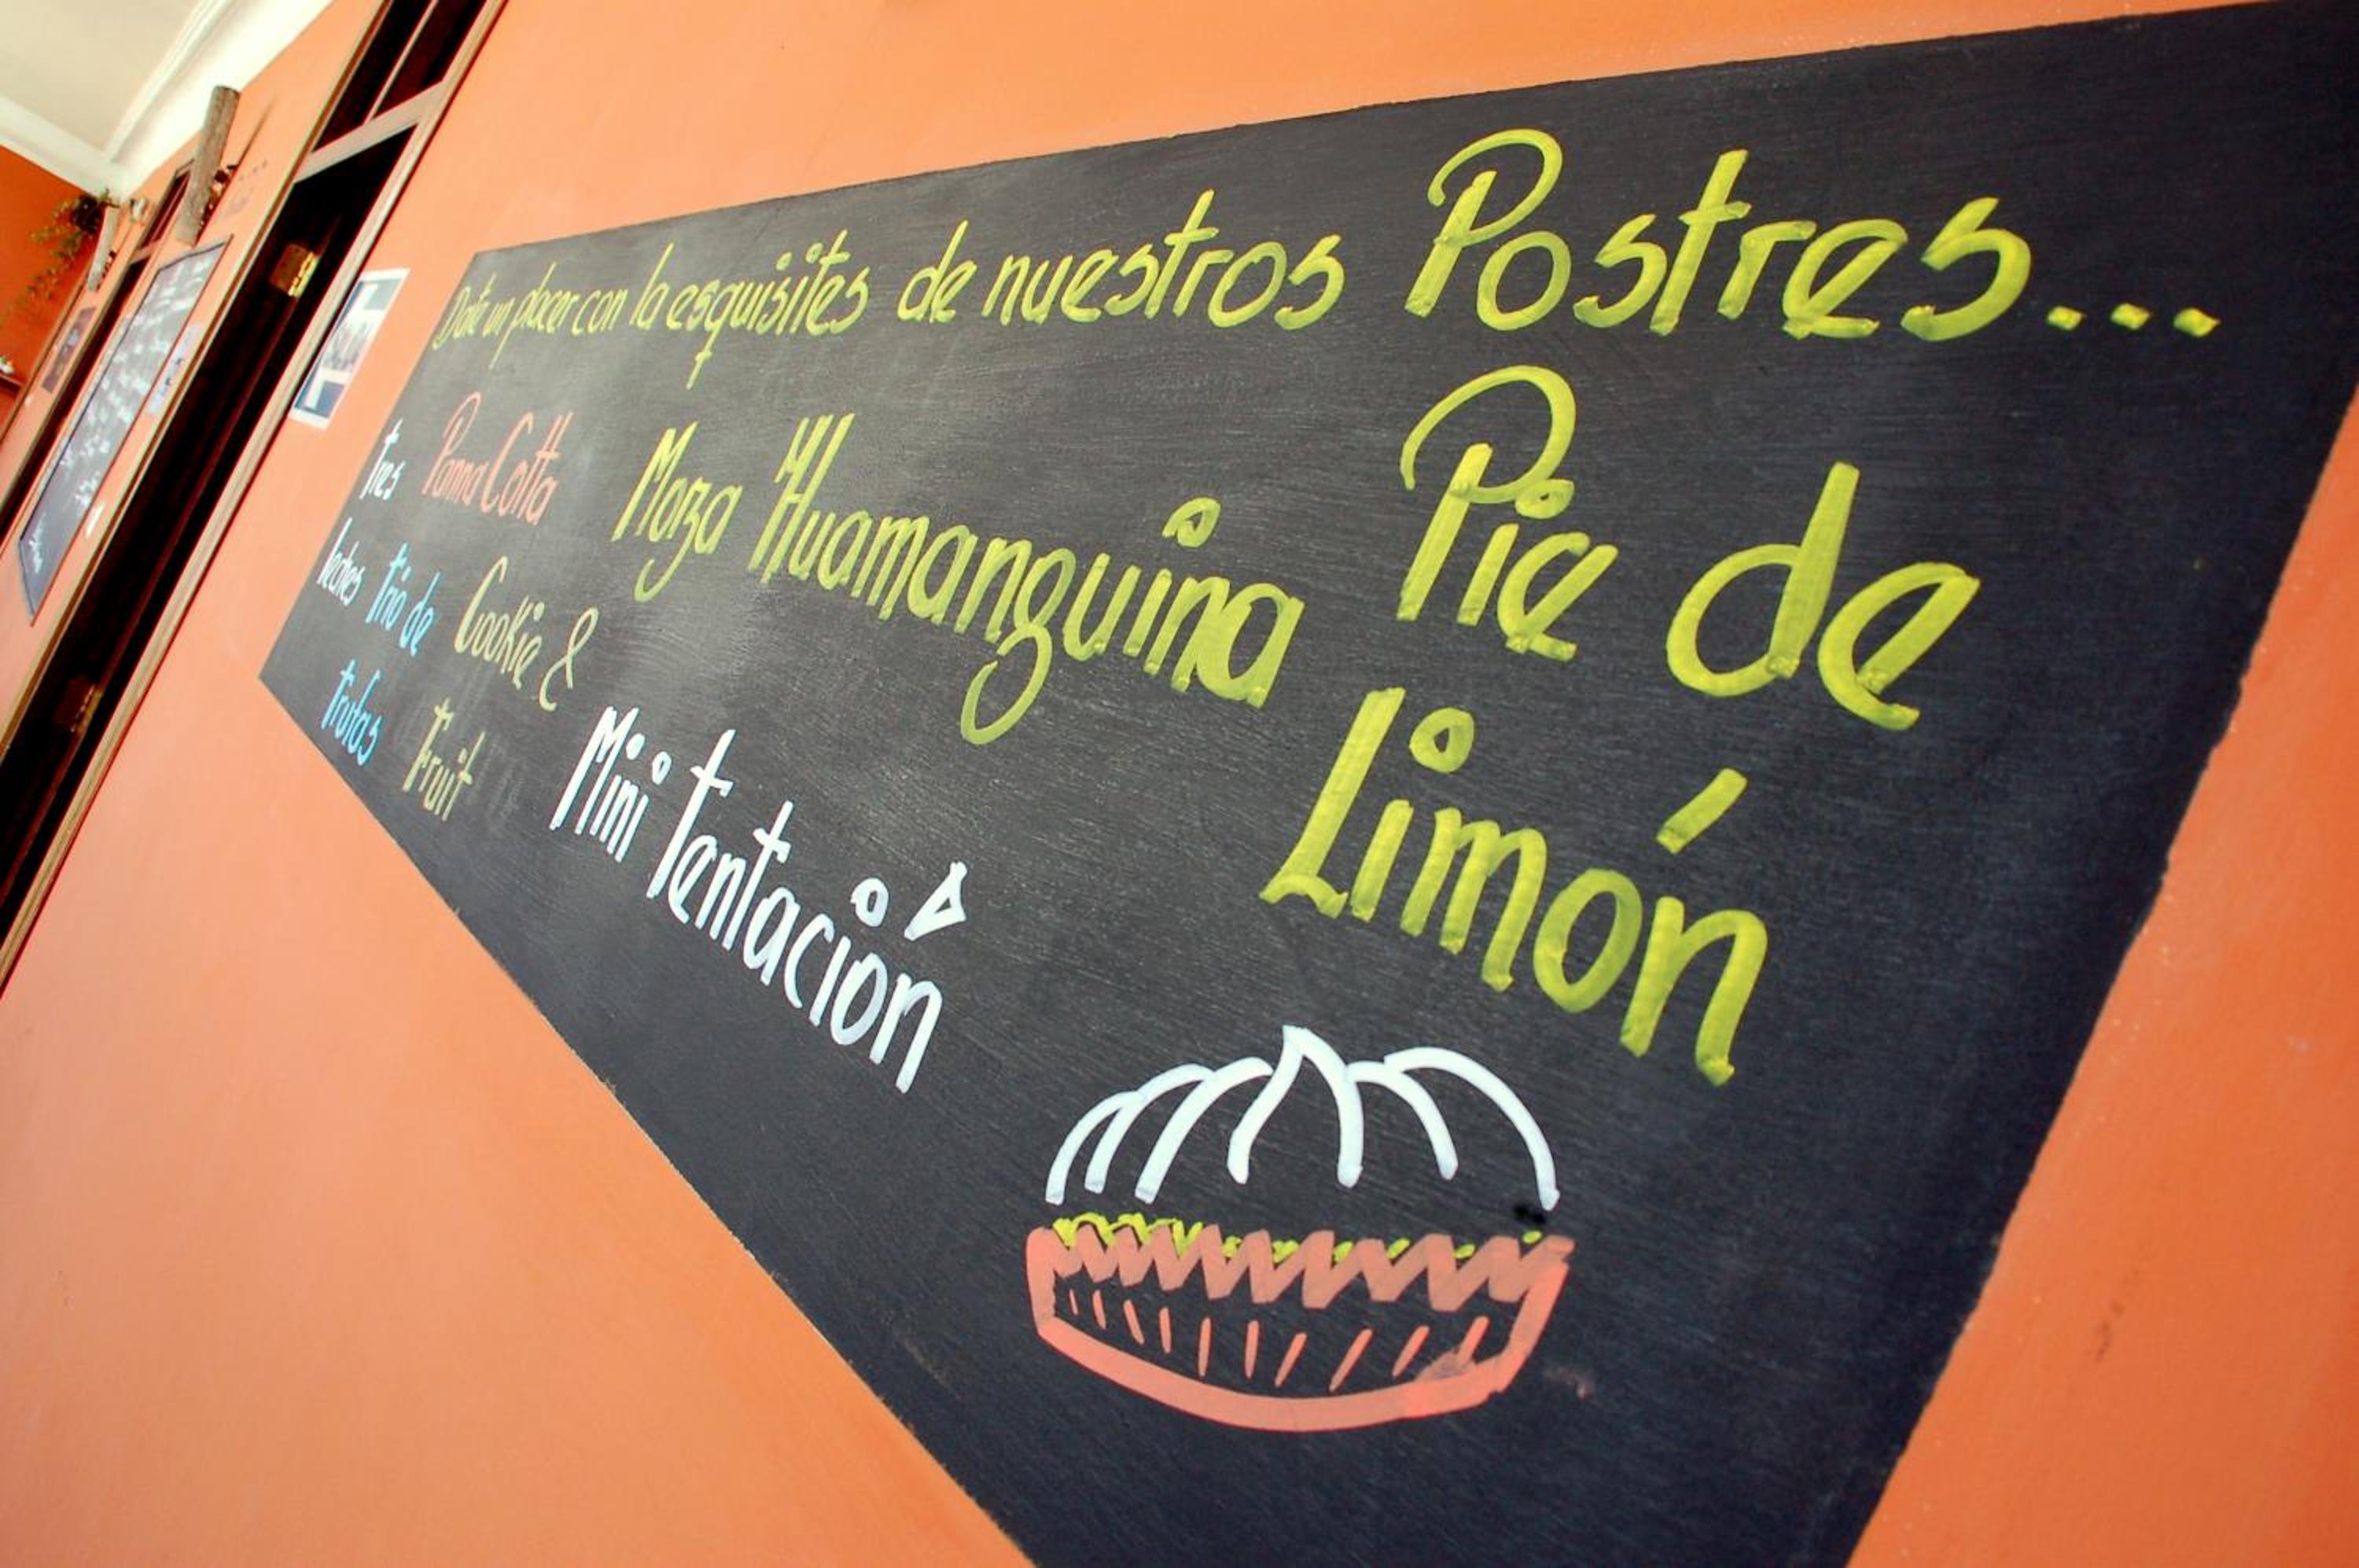 Date un placer con la esquisites de nuestros Postres...
Tres
leches
Panna Cotta
Trio de
frutas
Cookie &
Fruit
Morza Huamanguina
Mini Tentación
Pie de
Limón